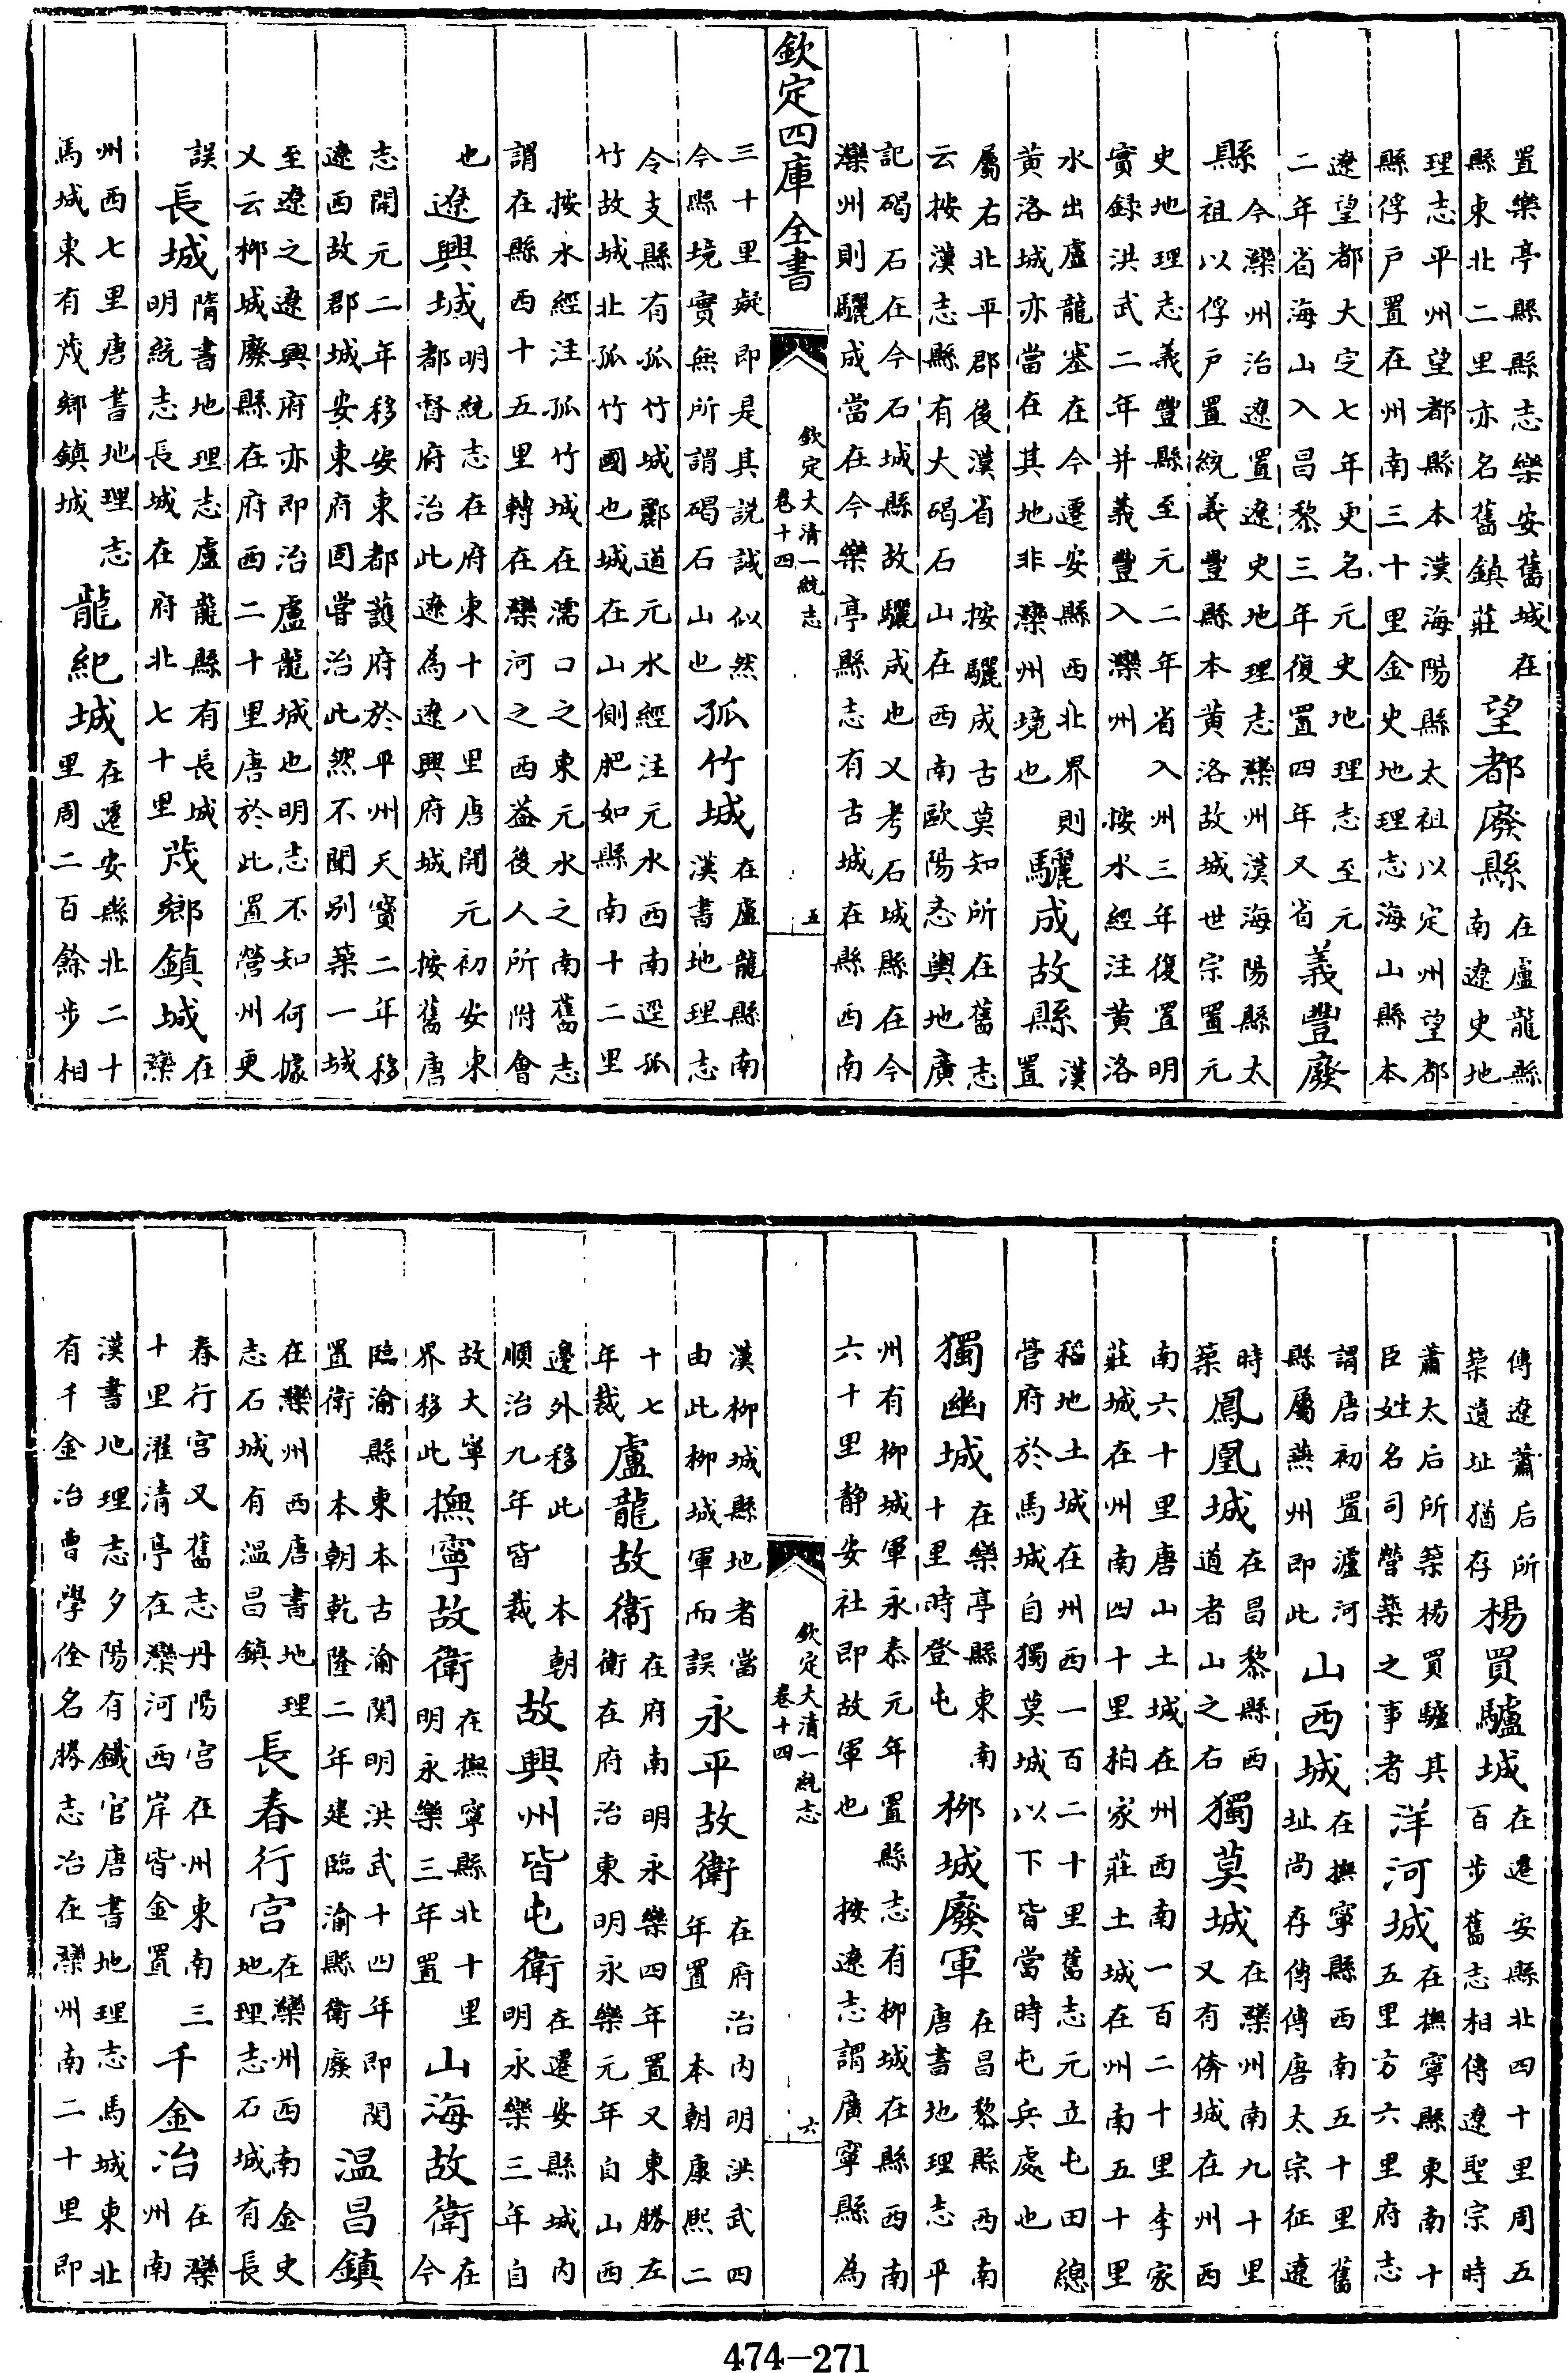 置樂亭縣志樂安舊城在
縣東北二里亦名舊鎮莊
望都廢縣
在盧龍縣
南遼史地
理志平州望都縣本漢海陽縣太祖以定州望都
縣俘戸置在州南三十里金史地理志海山縣本
遼望都大定七年更名元史地理志至元
二年省海山入昌黎三年復置四年又省
義豐廢
縣
今灤州治遼置遼史地理志灤州漢海陽縣太
祖以俘戸置統義豐縣本黄洛故城世宗置元
史地理志義豐縣至元二年省入州三年復置明
實録洪武二年并義豐入灤州 按水經注黄洛
水出盧龍塞在今遷安縣西北界則
黄洛城亦當在其地非灤州境也
驪成故縣
漢
置
屬右北平郡後漢省 按驪成古莫知所在舊志
云按漢志縣有大碣石山在西南歐陽忞輿地廣
記碣石在今石城縣故驪成也又考石城縣在今
灤州則驪成當在今樂亭縣志有古城在縣西南
欽定四庫全書
欽定大清一統志
卷十四
五
三十里疑即是其説誠似然
今縣境實無所謂碣石山也
孤竹城
在盧龍縣南
漢書地理志
令支縣有孤竹城酈道元水經注元水西南逕孤
竹故城北孤竹國也城在山側肥如縣南十二里
按水經注孤竹城在濡口之東元水之南舊志
謂在縣西十五里轉在灤河之西葢後人所附會
也
遼興城
明統志在府東十八里唐開元初安東
都督府治此遼為遼興府城 按舊唐
志開元二年移安東都護府於平州天寳二年移
遼西故郡城安東府固嘗治此然不聞别築一城
至遼之遼興府亦即治盧龍城也明志不知何據
又云柳城廢縣在府西二十里唐於此置營州更
誤
長城
隋書地理志盧龍縣有長城
明統志長城在府北七十里
茂鄉鎮城
在
灤
州西七里唐書地理志
馬城東有茂鄉鎮城
龍紀城
在遷安縣北二十
里周二百餘步相
傳遼蕭后所
築遺址猶存
楊買驢城
在遷安縣北四十里周五
百步舊志相傳遼聖宗時
蕭太后所築楊買驢其
臣姓名司營築之事者
洋河城
在撫寧縣東南十
五里方六里府志
謂唐初置瀘河
縣屬燕州即此
山西城
在撫寧縣西南五十里舊
址尚存傳傳唐太宗征遼
時
築
鳳凰城
在昌黎縣西
道者山之右
獨莫城
在灤州南九十里
又有儕城在州西
南六十里唐山土城在州西南一百二十里李家
莊城在州南四十里柏家莊土城在州南五十里
稻地土城在州西一百二十里舊志元立屯田總
管府於馬城自獨莫城以下皆當時屯兵處也
獨幽城
在樂亭縣東南
十里時登屯
柳城廢軍
在昌黎縣西南
唐書地理志平
州有柳城軍永泰元年置縣志有柳城在縣西南
六十里静安社即故軍也 按遼志謂廣寧縣為
欽定大清一統志
卷十四
六
漢柳城縣地者當
由此柳城軍而誤
永平故衛
在府治内明洪武四
年置本朝康熙二
十七
年裁
盧龍故衛
在府南明永樂四年置又東勝左
衛在府治東明永樂元年自山西
邊外移此 本朝
順治九年皆裁
故興州皆屯衛
在遷安縣城内
明永樂三年自
故大寧
界移此
撫寧故衛
在撫寧縣北十里
明永樂三年置
山海故衛
在
今
臨渝縣東本古渝関明洪武十四年即関
置衛 本朝乾隆二年建臨渝縣衛廢
温昌鎮
在灤州西唐書地理
志石城有温昌鎮
長春行宫
在灤州西南金史
地理志石城有長
春行宫又舊志丹陽宫在州東南三
十里濯清亭在灤河西岸皆金置
千金冶
在灤
州南
漢書地理志夕陽有鐵官唐書地理志馬城東北
有千金冶曹學佺名勝志冶在灤州南二十里即
474-271